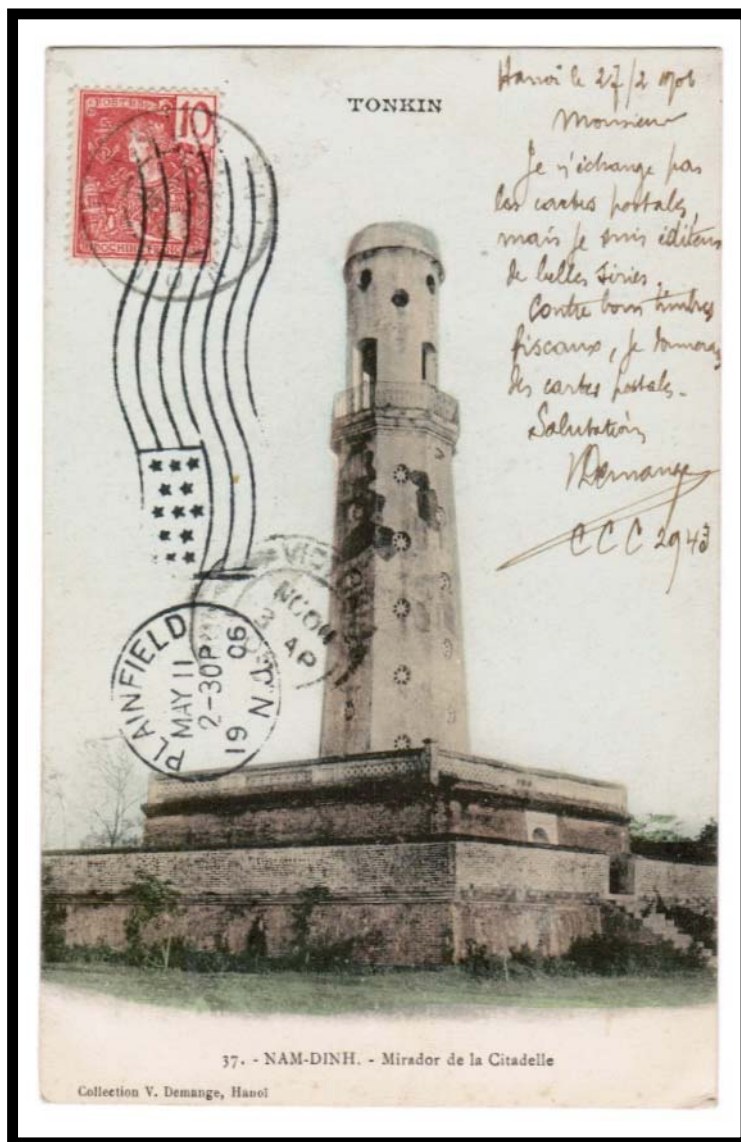 POSTES
10
INDOCHINE FSE
TONKIN
Hanoi le 27/2 1906
Monsieur
Je n'échange pas
les cartes postales,
mais je suis éditeur
de belles séries.
Contre bons timbres
fiscaux, je donnerai
des cartes postales.
Salutations
VDemange
CCC 2943
NOON
AP
PLAINFIELD
MAY 11
2-30P
19 06
N.J.
37. - NAM-DINH. - Mirador de la Citadelle
Collection V. Demange, Hanoï